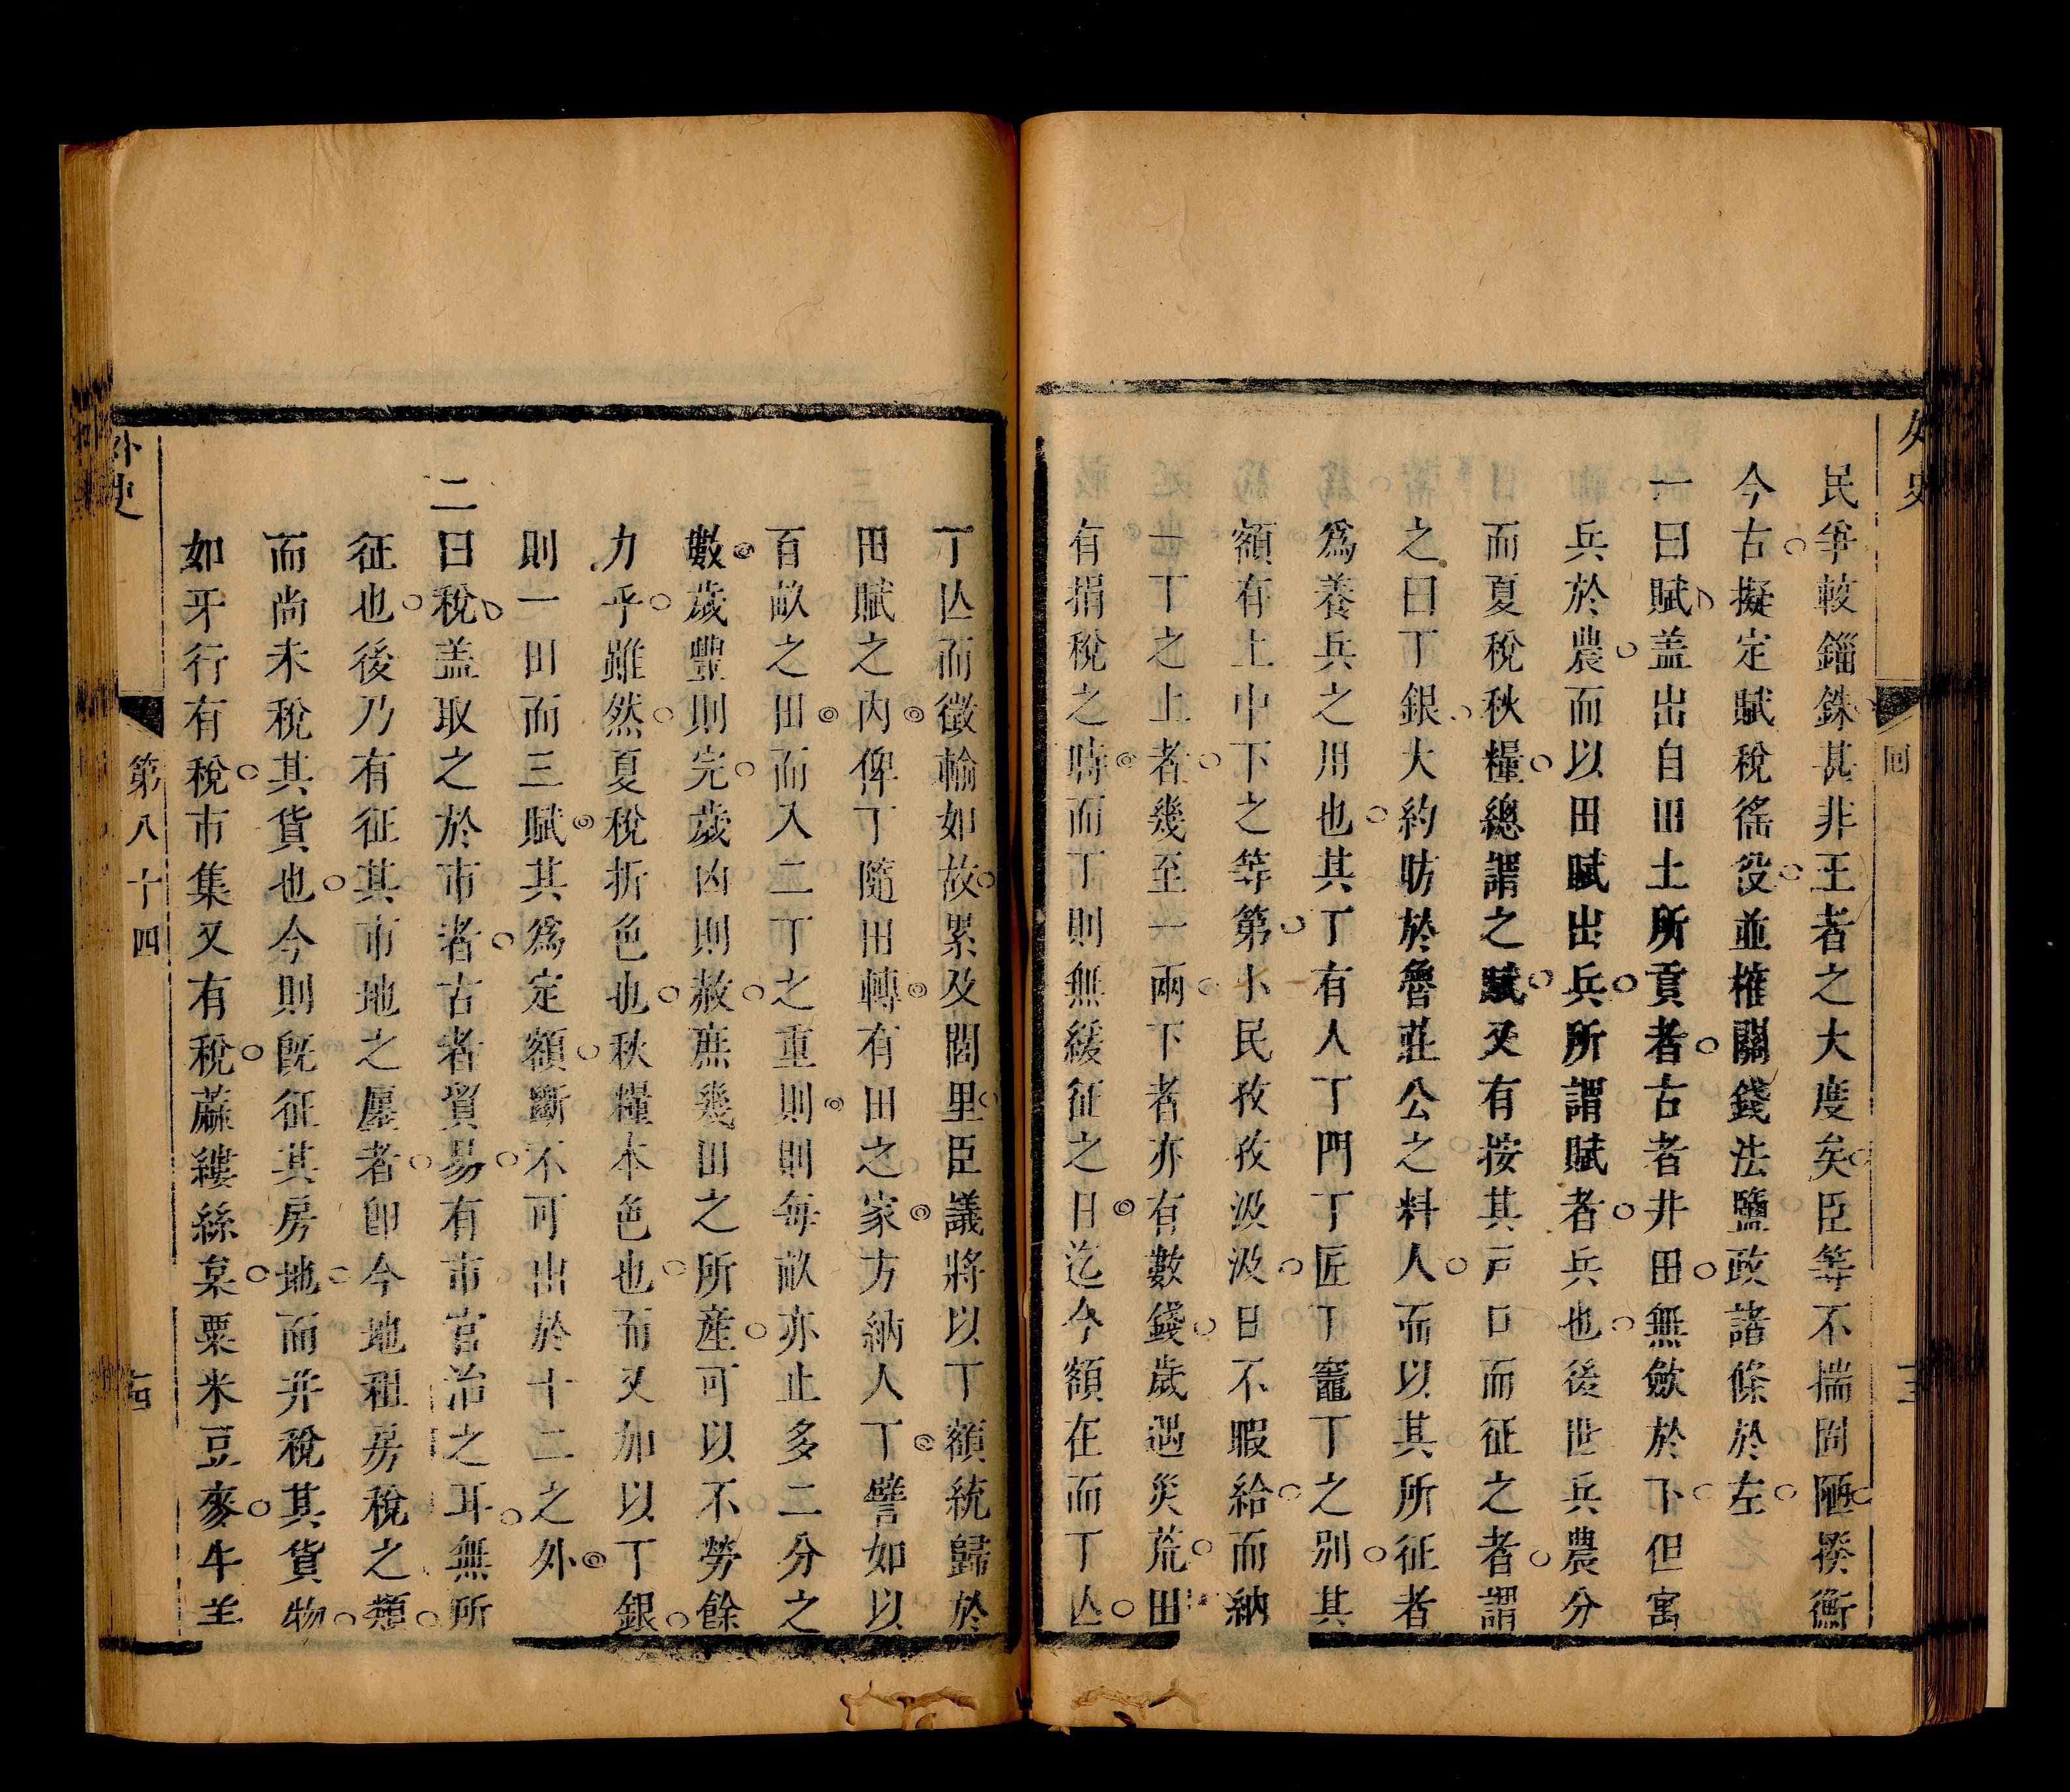 民爭較錙銖甚非王者之大度矣臣等不揣固陋揆衡
今古擬定賦稅徭役並榷關錢法鹽政諸條於左
一曰賦盖出自田土所貢者古者井田無斂於下但寓
兵於農而以田賦出兵所謂賦者兵也後世兵農分
而夏稅秋糧總謂之賦又有按其戸口而征之者謂
之曰丁銀大約昉於魯莊公之料人而以其所征者
爲養兵之用也其丁有人丁門丁匠丁竈丁之別其
額有上中下之等第小民孜孜汲汲日不暇給而納
一丁之上者幾至一兩下者亦有數錢歲遇災荒田
有捐稅之時而丁則無緩征之日迄今額在而丁亾
丁亾而徵輸如故累及閭里臣議將以丁額統歸於
田賦之內俾丁隨田轉有田之家方納人丁譬如以
百畝之田而入二丁之重則則每畝亦止多二分之
數歲豐則完歲凶則赦庶幾田之所產可以不勞餘
力乎雖然夏稅折色也秋糧本色也而又加以丁銀
則一田而三賦其爲定額斷不可出於十二之外
二曰稅盖取之於市者古者貿易有市官治之耳無所
征也後乃有征其市地之廛者卽今地租房稅之類
而尚未稅其貨也今則旣征其房地而并稅其貨物
如牙行有稅市集又有稅蔴縷絲枲粟米豆麥牛羊
外史
第八十四